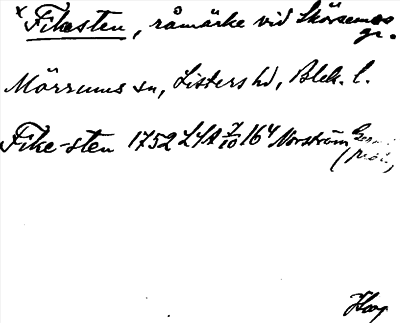 x Fikesten, råmärke vid Skörsemos gr.
Mörrums sn, Listers hd, Blek. l.
Fike-sten 1752 LSA 7/10 16⁴ Norström
Hoog